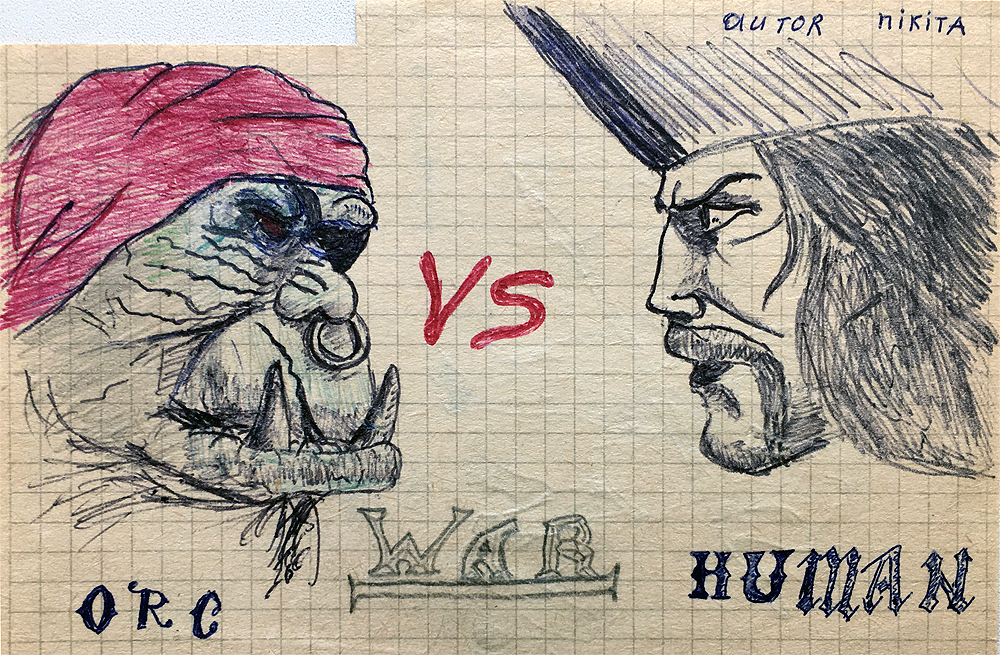 autor nikita
VS
WAR
ORC
HUMAN